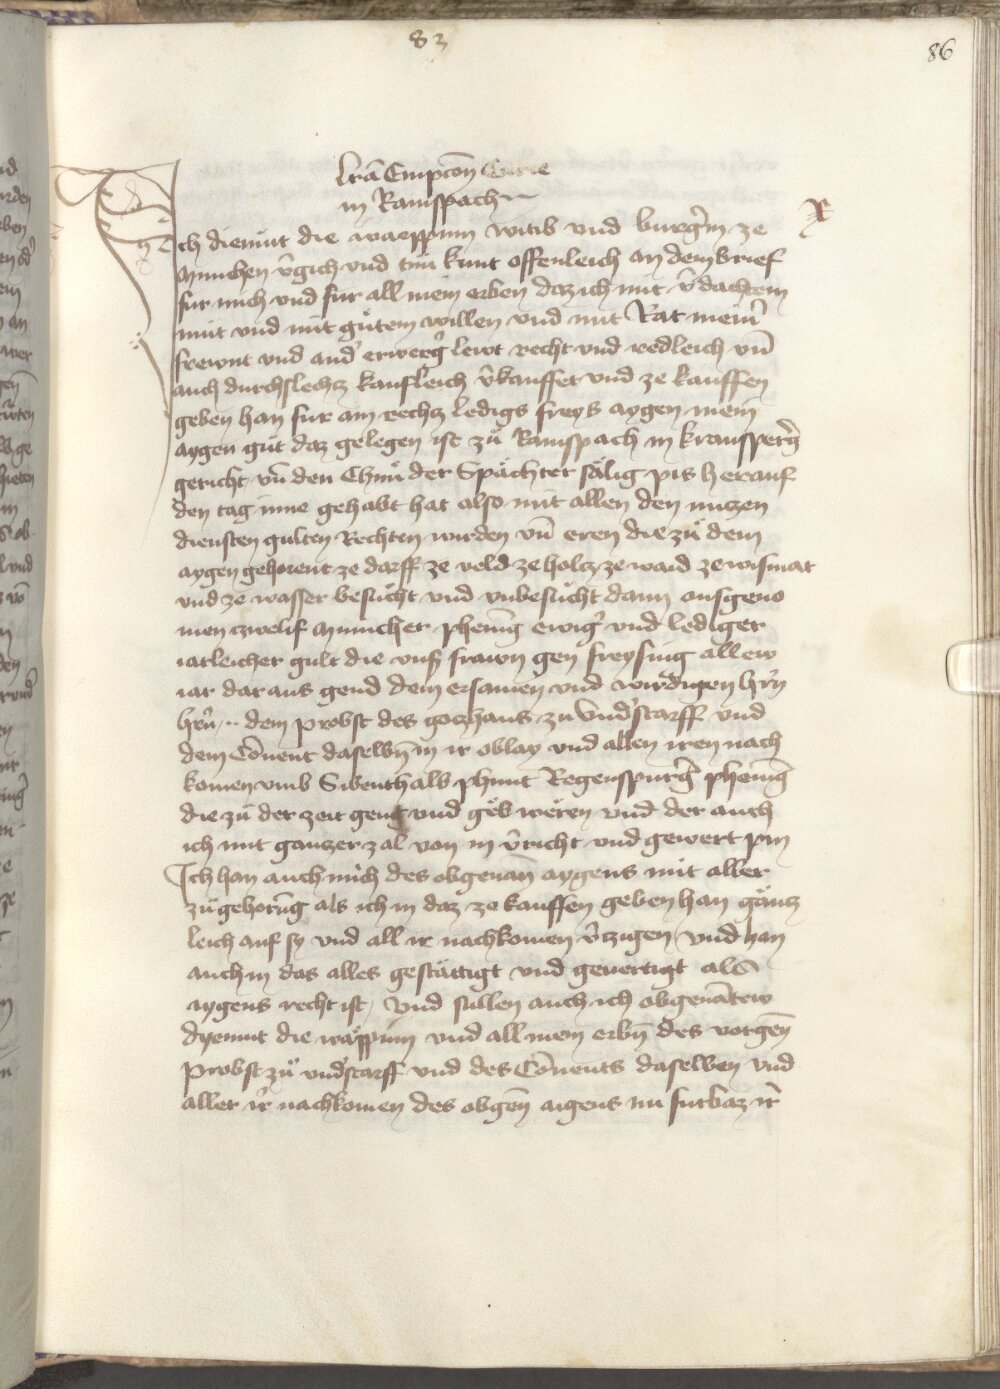 83
86
Lrã Empcõn Curie
in Ramspach
Ich diemut die waeppinn witib und burgˀin ze
München vˀgich und tun kunt offenleich an dem brief
fur mich und fur all mein erben daz ich mit vˀdachtem
mut und mit gůtem willen und mit Rat meinˀ
frewnt und andˀ erwergˀ lewt recht und redleich un̄
auch durchslechtz kaufleich vˀkauffet und ze kauffen
geben han fur ain rechtz ledigs freys aygen mein
aygen gůt daz gelegen ist zů Ramspach in kranspergˀ
gericht un̄ den Chunˀ der Spächter sälig pis herauf
den tag inne gehabt hat also mit allen den nutzen
diensten gulten Rechten wirden un̄ eren die zů dem
aygen gehorent ze darff ze veld ze holtz ze waid ze wismat
und ze wasser besůcht und unbesůcht dann ausgeno
men zwelif Municher phenīg ewigˀ und lediger
iarleicher gult die unsˀ frawn gen freysing allew
iar dar aus gend dem ersamen und wirdigen hrˀn
hrˀn .. dem probst des gotzhaus zu Undˀstarff und
dem Cōvent daselbn̄ in ir oblay und allen iren nach
komen umb Sibenthalb phunt Regenspurgˀ phenīg
die zů der zeit geng und gëb wëren und der auch
ich mit gantzer zal von in vˀricht und gewert pin
Ich han auch mich des obgenan̄ aygens mit aller
zůgehorūg als ich in daz ze kauffen geben han gäntz
leich auf sy und all ir nachkomen vˀtzigen und han
auch in das alles gestättigt und gevertigt als
aygens recht ist, Und sullen auch ich obgenātew
dyemut die wäppinn und all mein erbn̄ des vorgen̄
Probst zů undˀstarff und des Cōvents daselben und
aller irˀ nachkomen des obgen̄ aigens nu furbaz irˀ